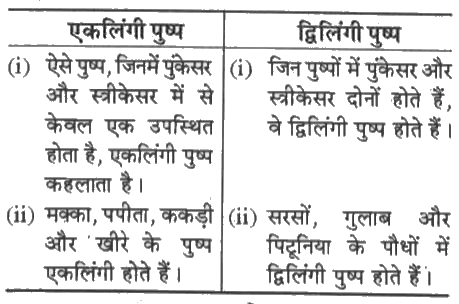 एकलिंगी पुष्प
द्विलिंगी पुष्प
(i) ऐसे पुष्प, जिनमें पुंकेसर
और स्त्रीकेसर में से
केवल एक उपस्थित
होता है, एकलिंगी पुष्प
कहलाता है।
(ii) मक्का, पपीता, ककड़ी
और खीरे के पुष्प
एकलिंगी होते हैं।
(i) जिन पुष्पों में पुंकेसर और
स्त्रीकेसर दोनों होते हैं,
वे द्विलिंगी पुष्प होते हैं।
(ii) सरसों, गुलाब और
पिटूनिया के पौधों में
द्विलिंगी पुष्प होते हैं।